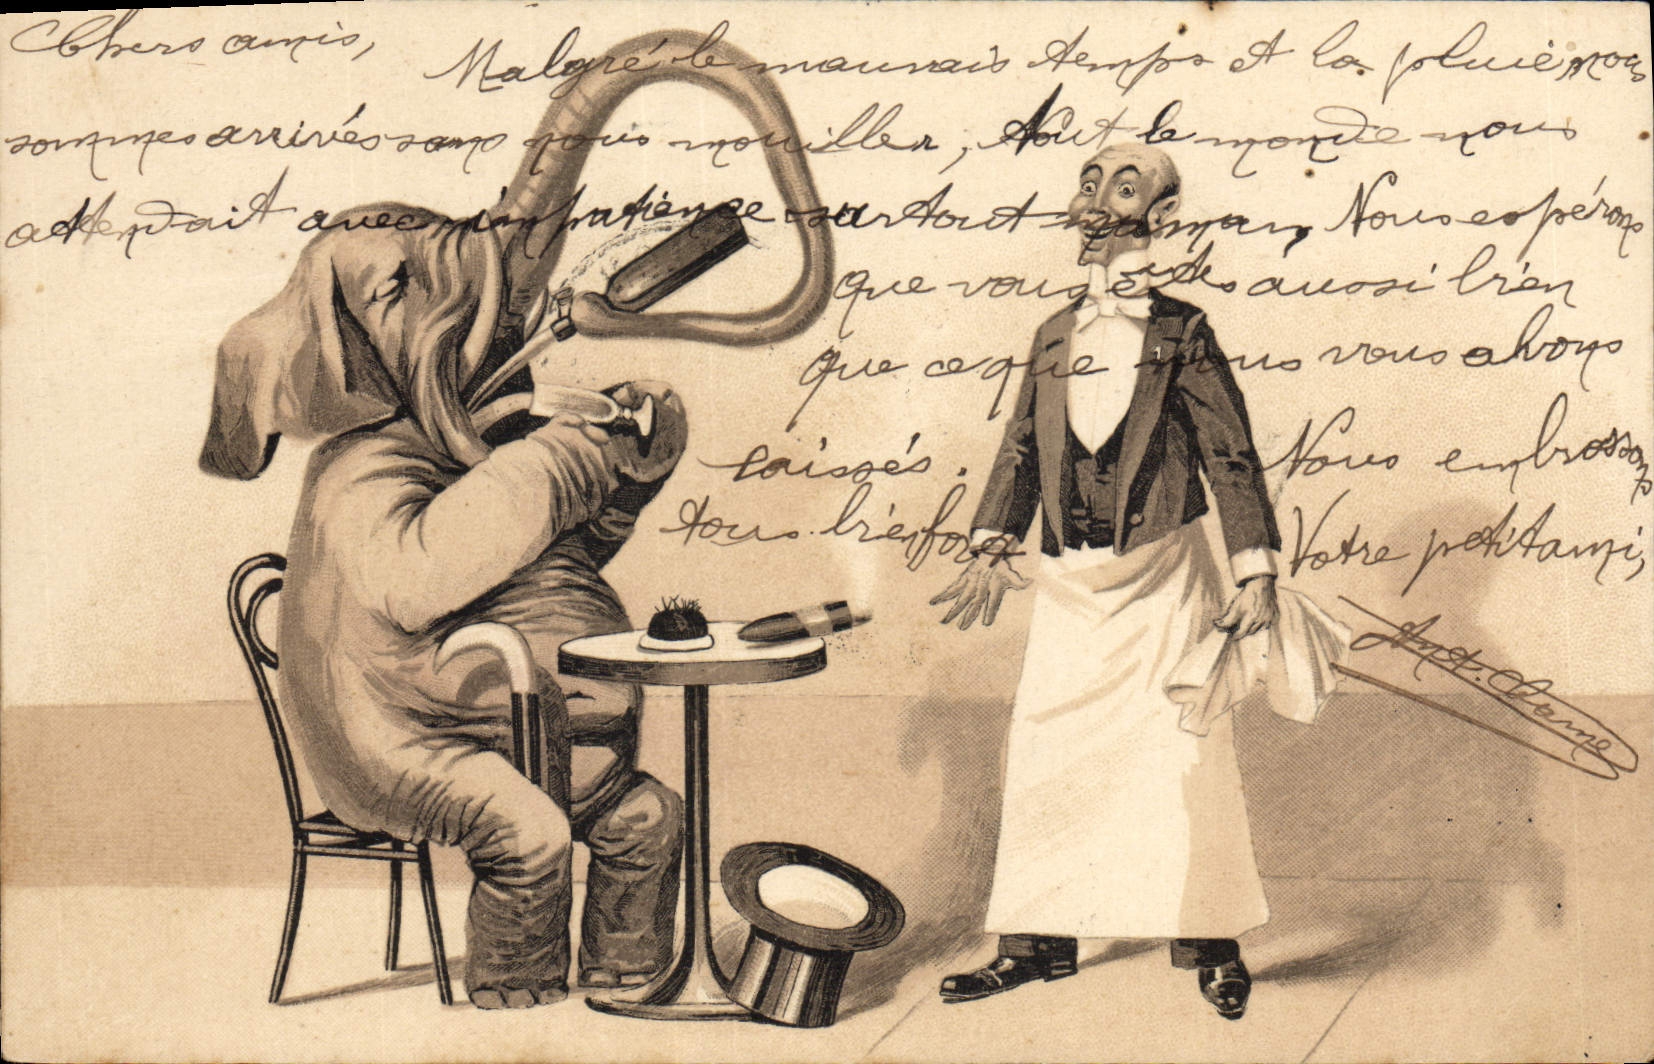 Chers amis,
Malgré le mauvais temps et la pluie, nous
sommes arrivés sans nous mouiller, tout le monde nous
attendait avec impatience surtout maman, Nous espérons
que vous êtes aussi bien
que ce que nous vous avons
laissés. Nous embrassons
tous bien fort
Votre petit ami,